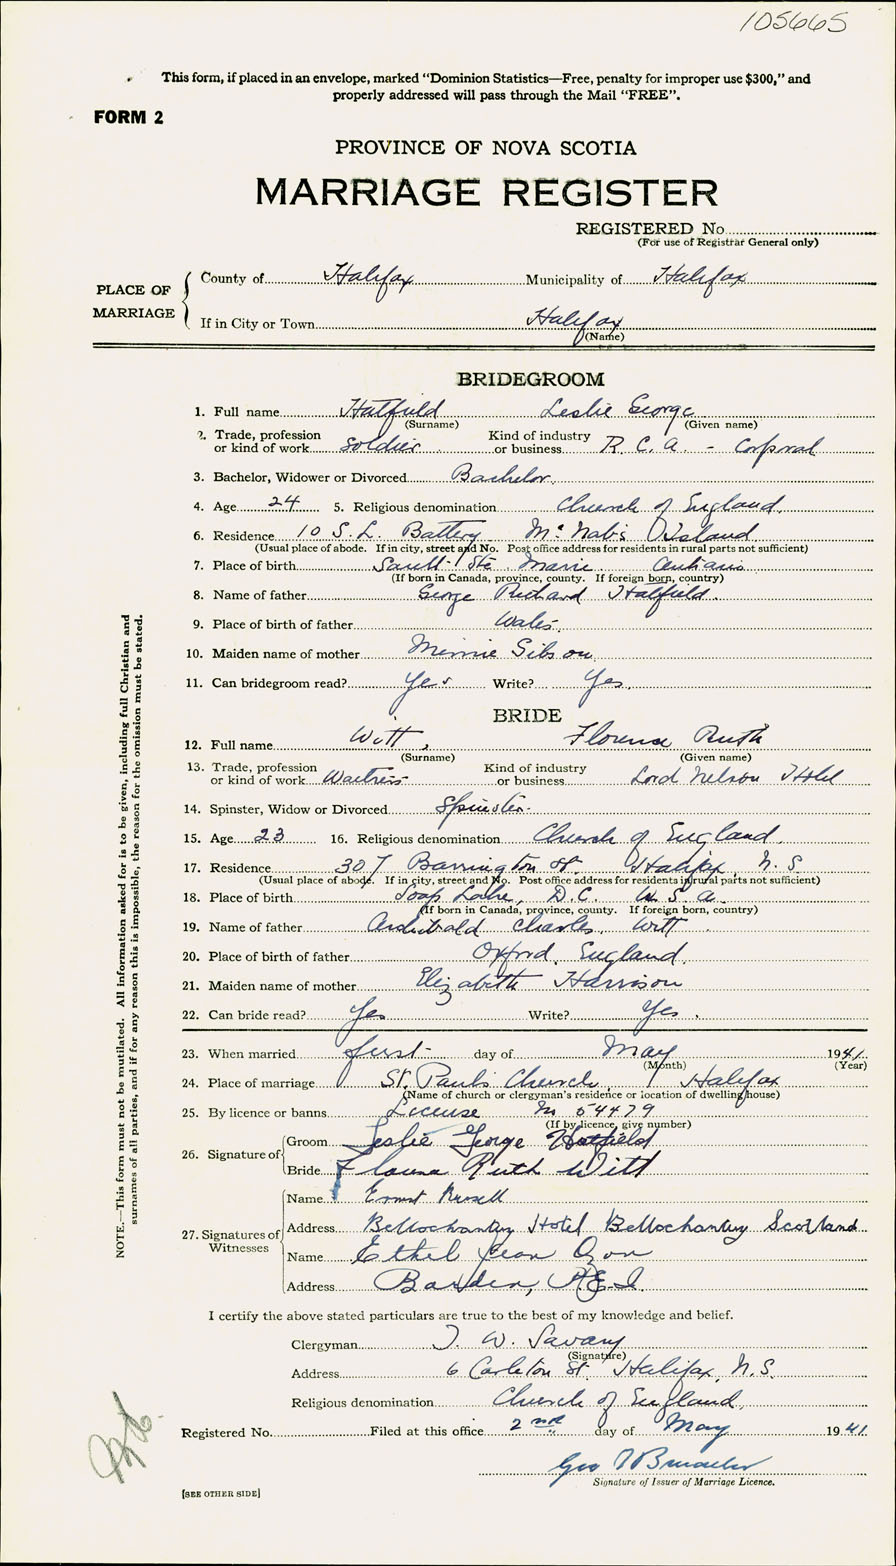 105665
This form, if placed in an envelope, marked "Dominion Statistics—Free, penalty for improper use $300," and
properly addressed will pass through the Mail "FREE".
FORM 2
PROVINCE OF NOVA SCOTIA
MARRIAGE REGISTER
REGISTERED No.
(For use of Registrar General only)
PLACE OF MARRIAGE
County of Halifax Municipality of Halifax
If in City or Town Halifax
(Name)
BRIDEGROOM
1. Full name Hatfield Leslie George
(Surname) (Given name)
2. Trade, profession or kind of work Soldier Kind of industry or business R.C.A. - Corporal
3. Bachelor, Widower or Divorced Bachelor.
4. Age 24 5. Religious denomination Church of England.
6. Residence 10 S.L. Battery McNab's Island
(Usual place of abode. If in city, street and No. Post office address for residents in rural parts not sufficient)
7. Place of birth Sault Ste Marie Ontario
(If born in Canada, province, county. If foreign born, country)
8. Name of father George Richard Hatfield.
9. Place of birth of father Wales.
10. Maiden name of mother Minnie Gibson
11. Can bridegroom read? Yes Write? Yes.
BRIDE
12. Full name Witt, Florence Ruth
(Surname) (Given name)
13. Trade, profession or kind of work Waitress Kind of industry or business Lord Nelson Hotel
14. Spinster, Widow or Divorced Spinster.
15. Age 23 16. Religious denomination Church of England.
17. Residence 307 Barrington St. Halifax, N.S
(Usual place of abode. If in city, street and No. Post office address for residents in rural parts not sufficient)
18. Place of birth Soap Lake, D.C. U.S.A.
(If born in Canada, province, county. If foreign born, country)
19. Name of father Archibald Charles Witt
20. Place of birth of father Oxford, England.
21. Maiden name of mother Elizabeth Harrison
22. Can bride read? Yes Write? Yes.
23. When married first day of May 1941.
(Month) (Year)
24. Place of marriage St. Paul's Church, Halifax
(Name of church or clergyman's residence or location of dwelling house)
25. By licence or banns License No 54479
(If by licence, give number)
26. Signature of
Groom Leslie George Hatfield
Bride Florence Ruth Witt
27. Signatures of Witnesses
Name Ernest Russell
Address Bellochantuy Hotel Bellochantuy Scotland
Name Ethel Jean
Address Borden, P.E.I.
I certify the above stated particulars are true to the best of my knowledge and belief.
Clergyman T. W. Savary
(Signature)
Address 6 Carleton St. Halifax, N.S.
Religious denomination Church of England.
Registered No. Filed at this office 2nd day of May 1941.
Geo
Signature of Issuer of Marriage Licence.
[SEE OTHER SIDE]
NOTE.—This form must not be mutilated. All information asked for is to be given, including full Christian and
surnames of all parties, and if for any reason this is impossible, the reason for the omission must be stated.